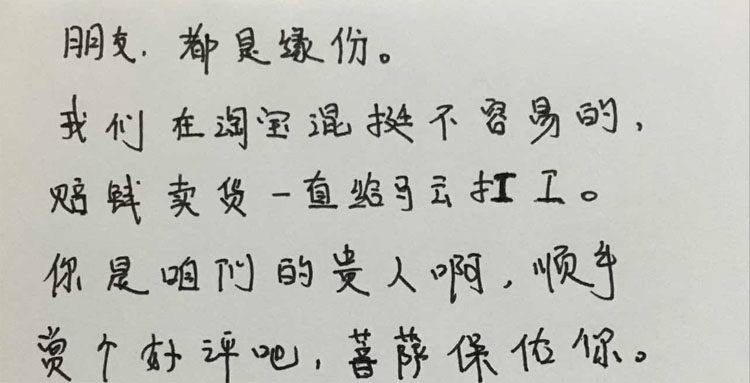 朋友，都是缘份。
我们在淘宝混挺不容易的，
赔钱卖货一直给马云打工。
你是咱们的贵人啊，顺手
赏个好评吧，菩萨保佑你。